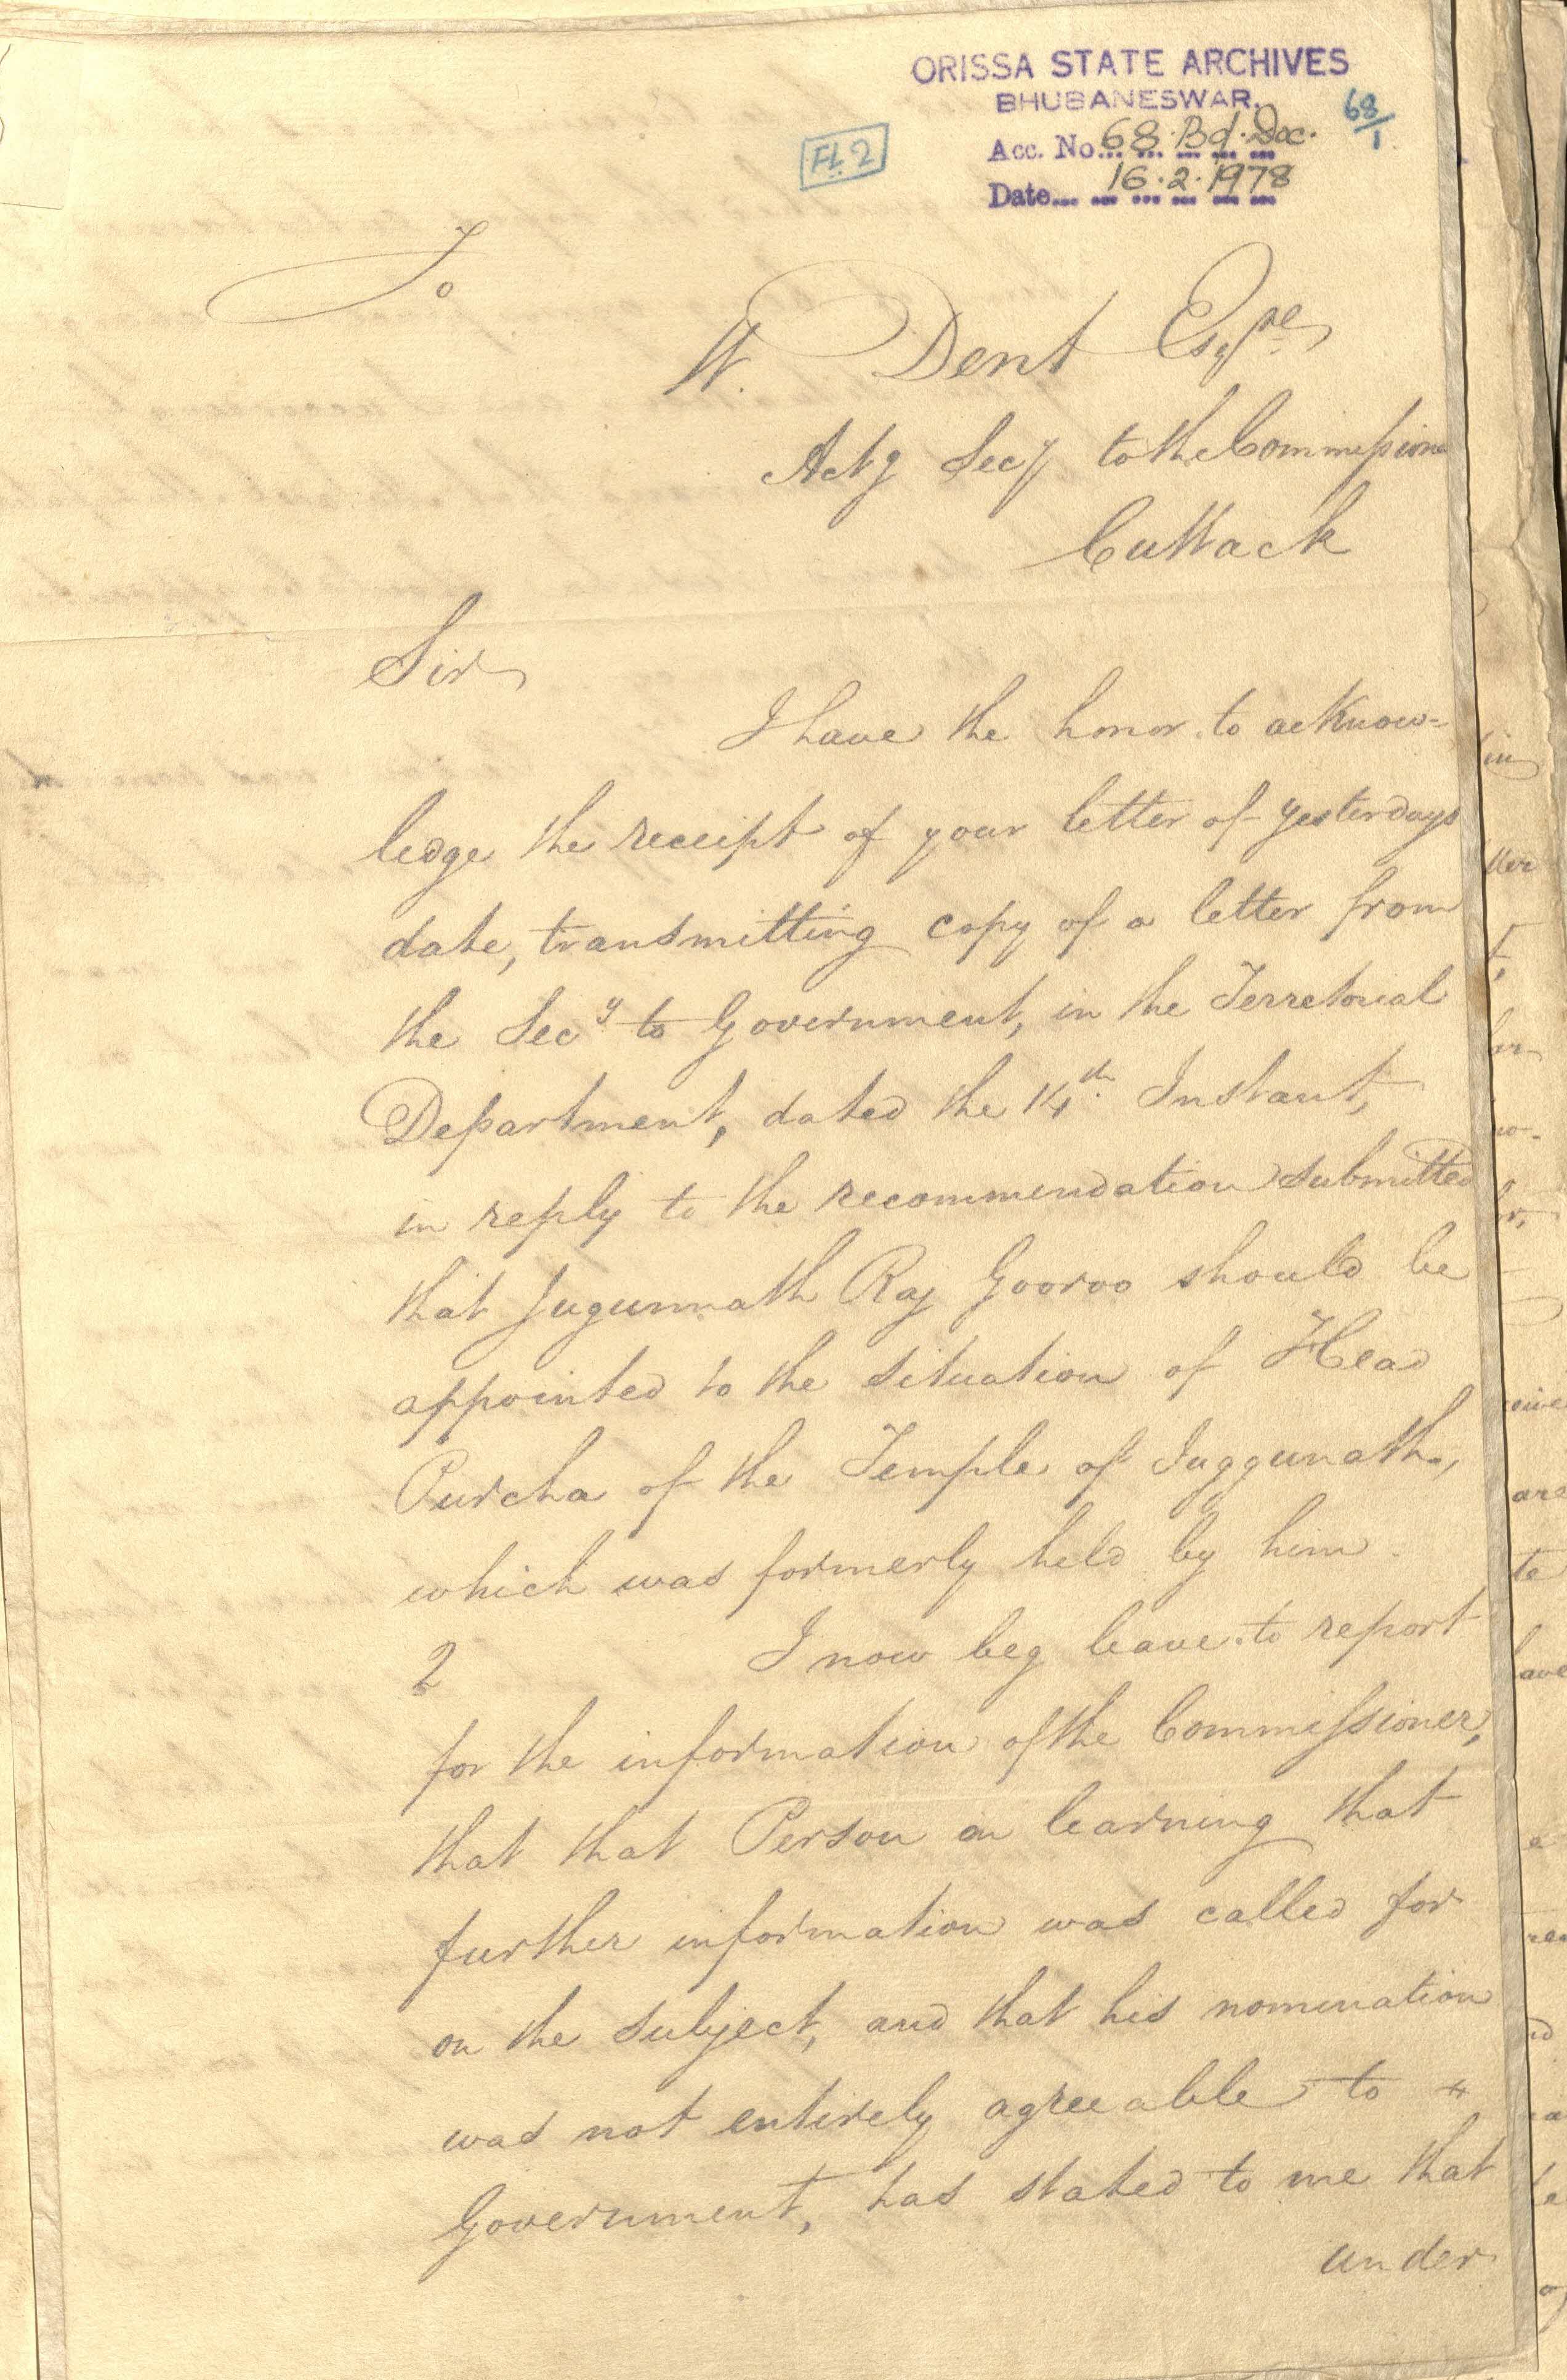 ORISSA STATE ARCHIVES
BHUBANESWAR.
Acc. No. 68. Bd. Doc.
Date 16.2.1978
68/1
FL 2
To
W. Dent Esqre
Actg Secy to the Commissioner
Cuttack
Sir
I have the honor to acknow=
ledge the receipt of your letter of yesterdays
date, transmitting copy of a letter from
the Secy to Government, in the Terretorial
Department, dated the 14th Instant,
in reply to the recommendation submitted
that Jugunnath Raj Gooroo should be
appointed to the situation of Head
Purcha of the Temple of Juggunath,
which was formerly held by him.
2 I now beg leave to report
for the information of the Commissioner,
that that Person on learning that
further information was called for
on the subject, and that his nomination
was not entirely agreeable to
Government, has stated to me that
under